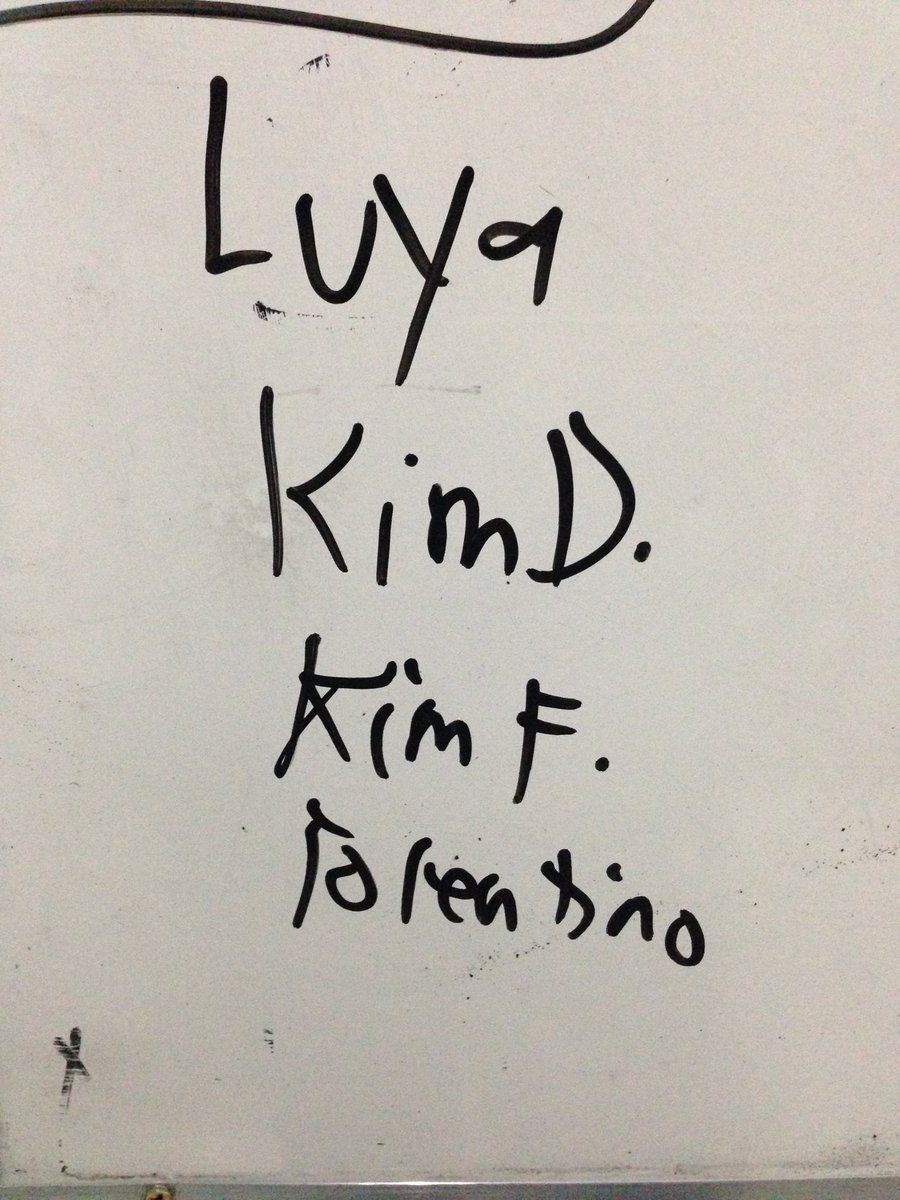 Luya
Kim D.
Kim F.
Tolentino